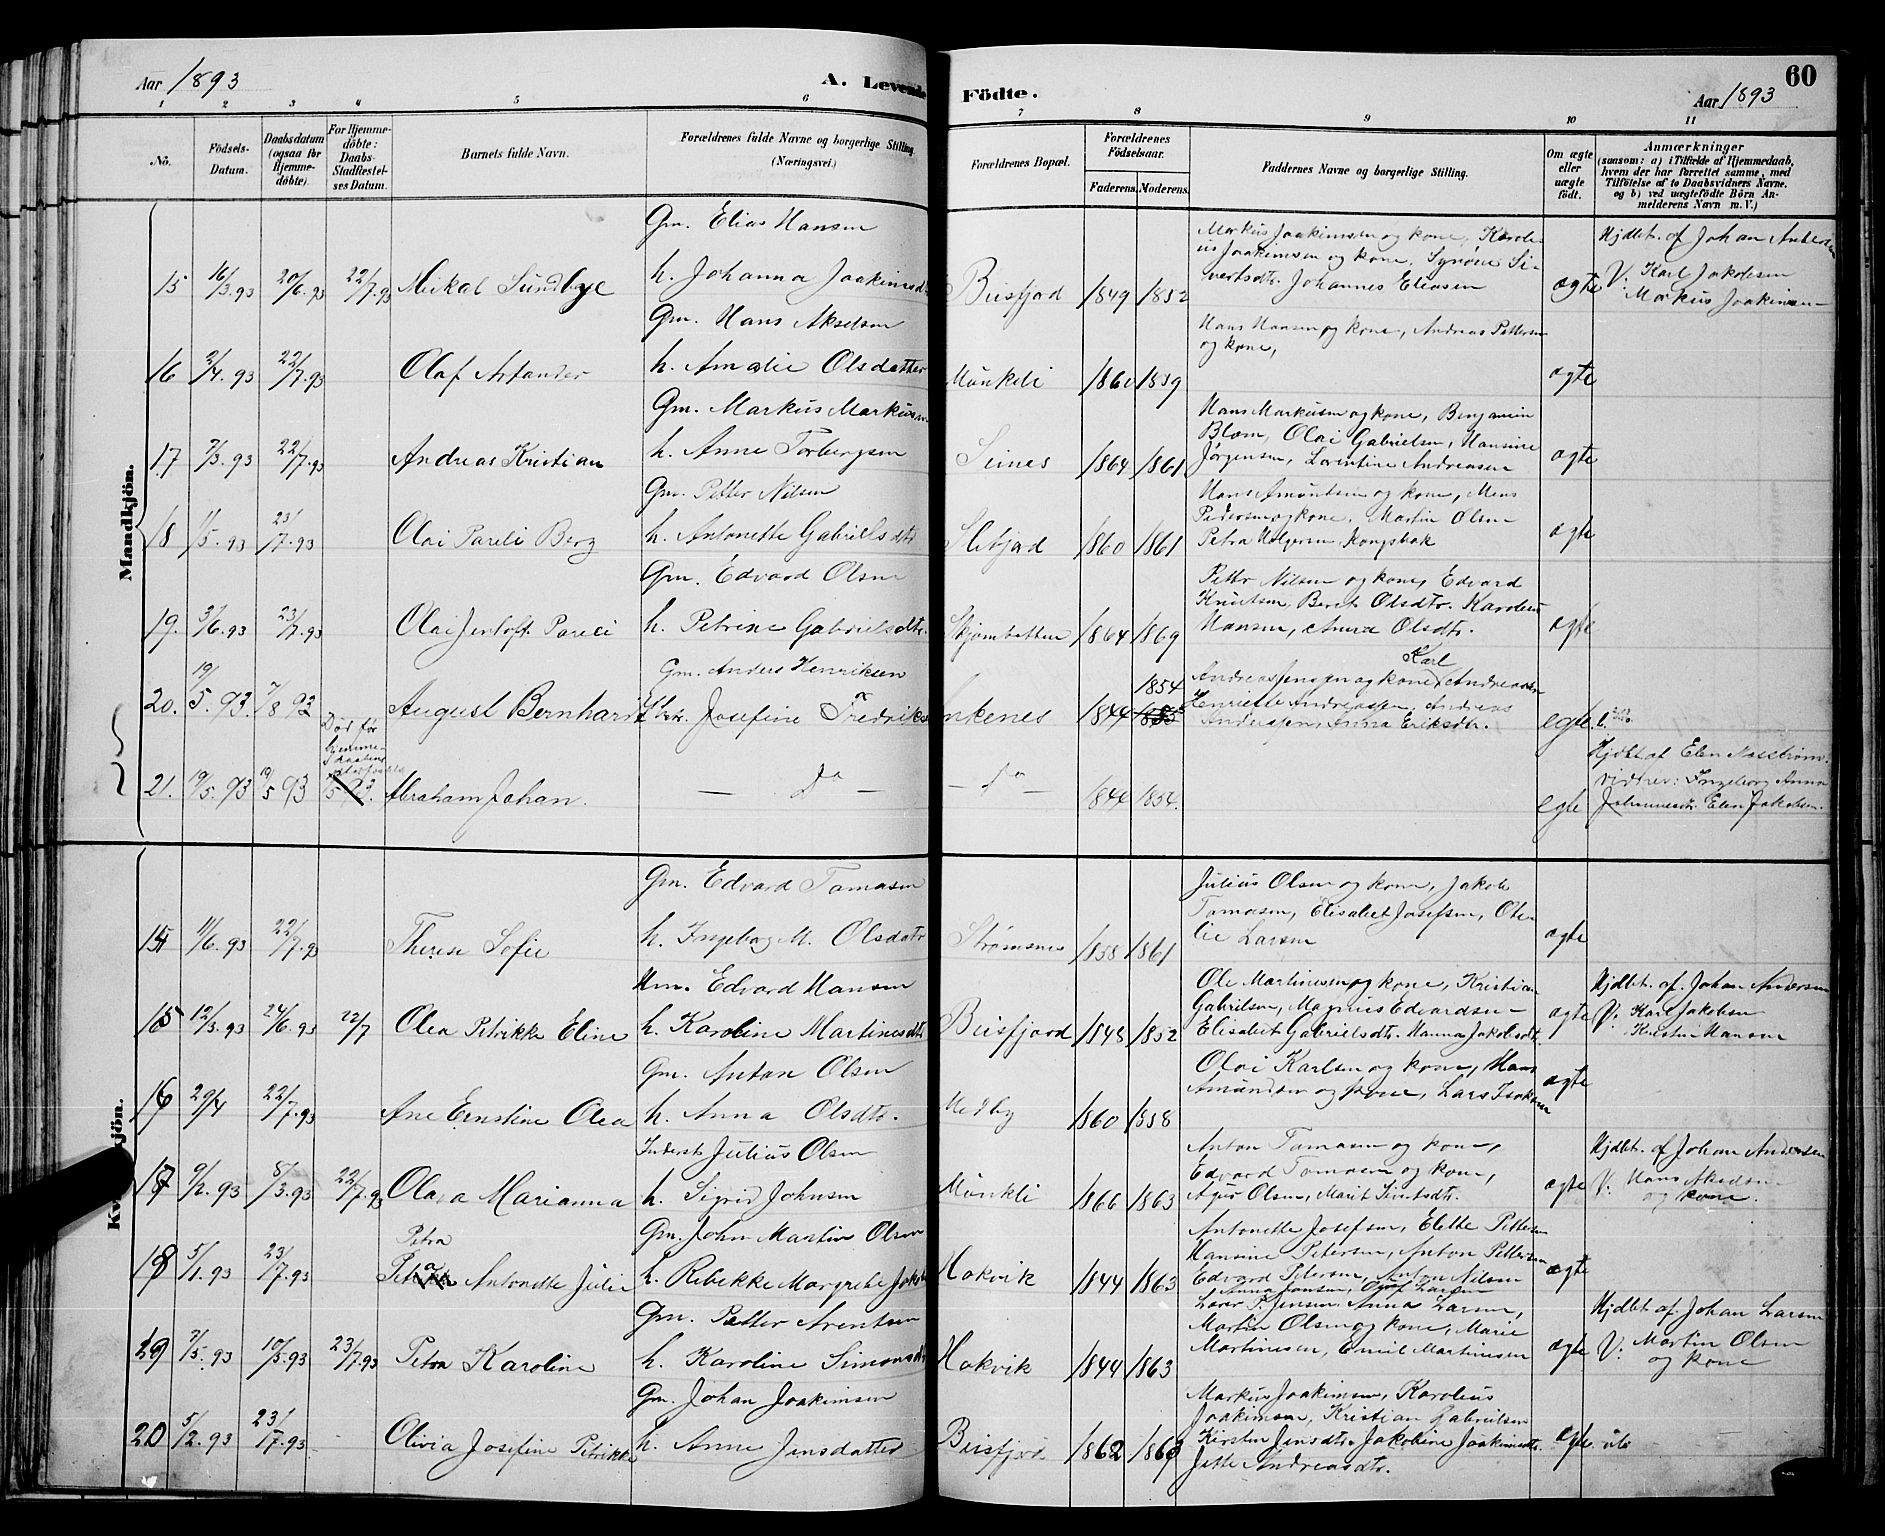 Aar 1893
A. Levende Födte.
Aar 1893
60
1 2 3 4 5 6 7 8 9 10 11
No.
Födsels-
Datum.
Daabsdatum
(ogsaa for
Hjemme-
döbte).
For Hjemme-
döbte:
Daabs-
Stadfæstel-
ses Datum.
Barnets fulde Navn.
Forældrenes fulde Navne og borgerlige Stilling
(Næringsvei.)
Forældrenes Bopæl.
Forældrenes
Födselsaar.
Faderens. Moderens.
Faddernes Navne og borgerlige Stilling.
Om ægte
eller
uægte
födt.
Anmærkninger
(saasom: a) i Tilfælde af Hjemmedaab,
hvem der har forrettet samme, med
Tilföielse af to Daabsvidners Navne.
og b) ved uægtefödte Börn An-
melderens Navn m. V.)
Mandkjön.
15 16/3.93 20/6.93 22/7.93 Mikal Sundbye
Gm. Elias Hansen
h. Johanna Joakimsdt
Beisfjord 1849 1852
Markus Joakimsen og kone, Karole-
us Joakimsen og kone, Synöve Si-
vertsdt. Johannes Eliasen
ægte
Hjdbt. af Johan Andersen
V: Karl Jakobsen
Markus Joakimsen
16 2/4.93 22/7.93 Olaf Arfander
Gm. Hans Akselsen
h. Amalie Olsdatter
Munkeli 1860 1859
Hans Hansen og kone, Andreas Pettersen
og kone,
ægte
17 7/3.93 22/7.93 Andreas Kristian
Gm. Markus Markusen
h. Anne Torbergsen
Seines 1864 1861
Hans Markusen og kone, Benjamin
Blom, Olai Gabrielsen, Hansine
Jørgensen, Lorentine Andreasen
ægte
18 11/5.93 23/7.93 Olai Pareli Berg
Gm. Petter Nilsen
h. Antonette Gabrielsdtr
Sletjord 1860 1861
Hans Amundsen og kone, Mons
Pedersen og kone, Martin Olsen
Petra Holgersen, Kongsbak
ægte
19. 3/6.93 23/7.93 Olai Jentoft Pareli
Gm. Edvard Olsen
h. Petrine Gabrielsdtr.
Skjombotten 1864 1869
Petter Nilsen og kone, Edvard
Knutsen, Beret Olsdtr. Karolius
Hansen, Anna Olsdtr.
ægte
20. 19/5.93. 7/8 93 August Bernhard
Gm. Anders Henriksen
Josefine Fredriks
Ankenes 1844 1854
Andreas Jensen og kone, Karl Andreassen
Henriette Andreassen, Andreas
Anderssen, Anna Eriksdtr.
egte
21. 19/5.93 19/5 93 Abraham Johan.
Död før
hjemme-
daabens
— Do — — Do — 1844 1854.
egte
Hjdbt af Elen Nasström.
vidner: Ingeborg Anna
Johannesdt. Elen Jakobsen.
Kvindkjön.
15 11/6.93 22/7.93 Therese Sofie
Gm. Edvard Tomasen
h. Ingeborg M. Olsdatr
Strømsnes 1858 1861
Julius Olsen og kone, Jakob
Tomasen, Elisabet Josefsen, Ote-
lie Larsen
ægte
16 12/3.93 24/6.93 22/7 Olea Petrikke Eline
Hm. Edvard Hansen
h. Karoline Martinesdtr
Beisfjord 1848 1852
Ole Martinesen og kone, Kristian
Gabrielsen, Magnus Edvardsen
Elisabet Gabrielsdtr. Hanna Jakobsdt.
ægte
Hjdbt. af. Johan Andersen
V: Karl Jakobsen
Kristin Hansen
17 29/4 22/7.93 Ane Ernstine Olea
Gm. Anton Olsen
h. Anna Olsdtr.
Medby 1860 1858
Olai Karlsen og kone, Hans
Amundsen og kone, Lars Isaksen
ægte
18 9/2.93 8/3.93 22/7.93 Olava Marianna
Inderst Julius Olsen
h. Sigrid Johnsen
Munkli 1866 1863
Anton Tomasen og kone,
Edvard Tomasen og kone,
Olsen, Marit Sivertsdt.
ægte
Hjdbt. af Johan Andersen
V: Hans Akselsen
og kone.
19 5/1.93 23/7.93 Petra Antonette Julie
Gm. John Martin Olsen
h. Rebekke Margrete Jakob
Hokvik 1844 1863
Antonette Josefsen, Elette Pettersen
Hansine Petersen, Anton Pettersen
Edvard Petersen, Anton Nilsen
ægte
20 7/5.93 10/5.93 23/7.93 Petra Karoline
Gm. Petter Arentsen
h. Karoline Simonsdt
Hokvik 1844 1863
Anna Jonsen, Olaf Larsen
Lars P. Jensen, Anna Larsen,
Martin Olsen og kone, Marie
Martinesen, Emil Martinesen
ægte
Hjdbt. af. Johan Larsen
V: Martin Olsen
og kone
20 5/2.93 23/7.93 Olivia Josefine Petrikke
Gm. Johan Joakimsen
h. Anne Jensdatter
Beisfjord 1862 1863
Markus Joakimsen, Karolius
Joakimsen, Kristian Gabrielsen
Kirsten Jensdtr. Jakobine Joakimsdtr.
Jette Andreasdtr.
ægte